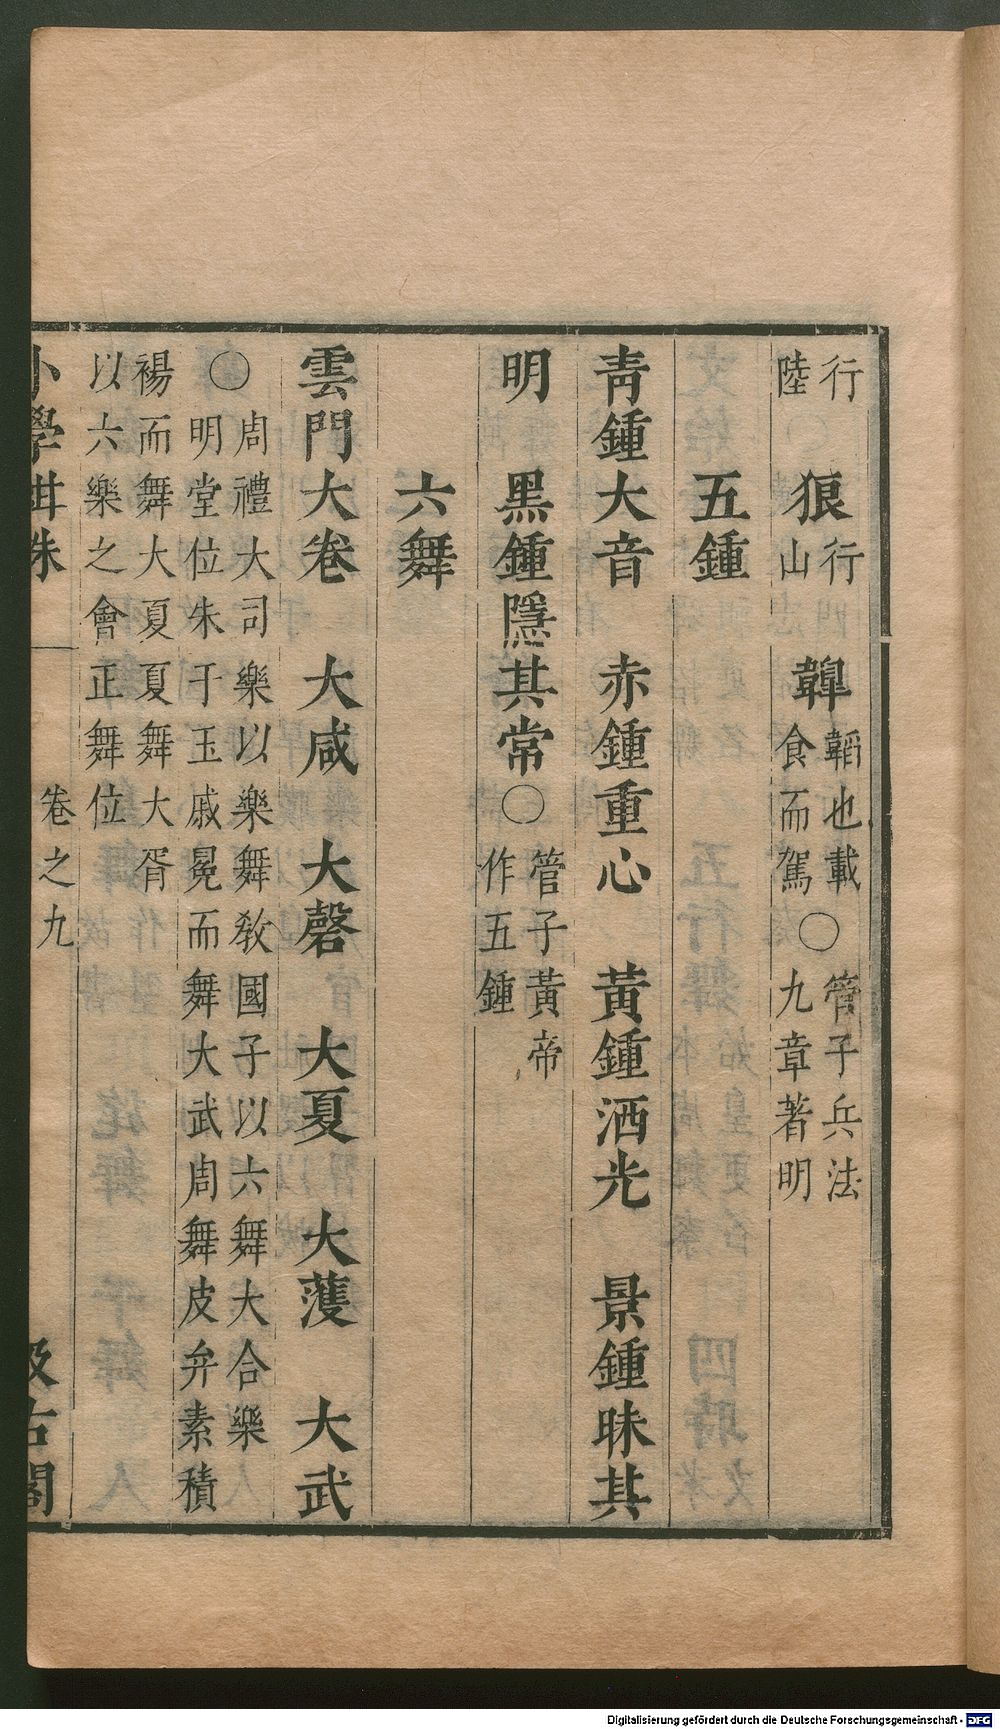 行陸 狼行山 韟韜也載食而駕〇管子兵法九章著明
五鍾
青鍾大音 赤鍾重心 黃鍾洒光 景鍾昧其
明 黑鍾隱其常〇管子黃帝作五鍾
六舞
雲門大卷 大咸 大磬 大夏 大濩 大武
〇周禮大司樂以樂舞敎國子以六舞大合樂明堂位朱于玉戚冕而舞大武周舞皮弁素積
裼而舞大夏夏舞大胥以六樂之會正舞位
小學紺珠 卷之九 汲古閣
Digitalisierung gefördert durch die Deutsche Forschungsgemeinschaft - DFG